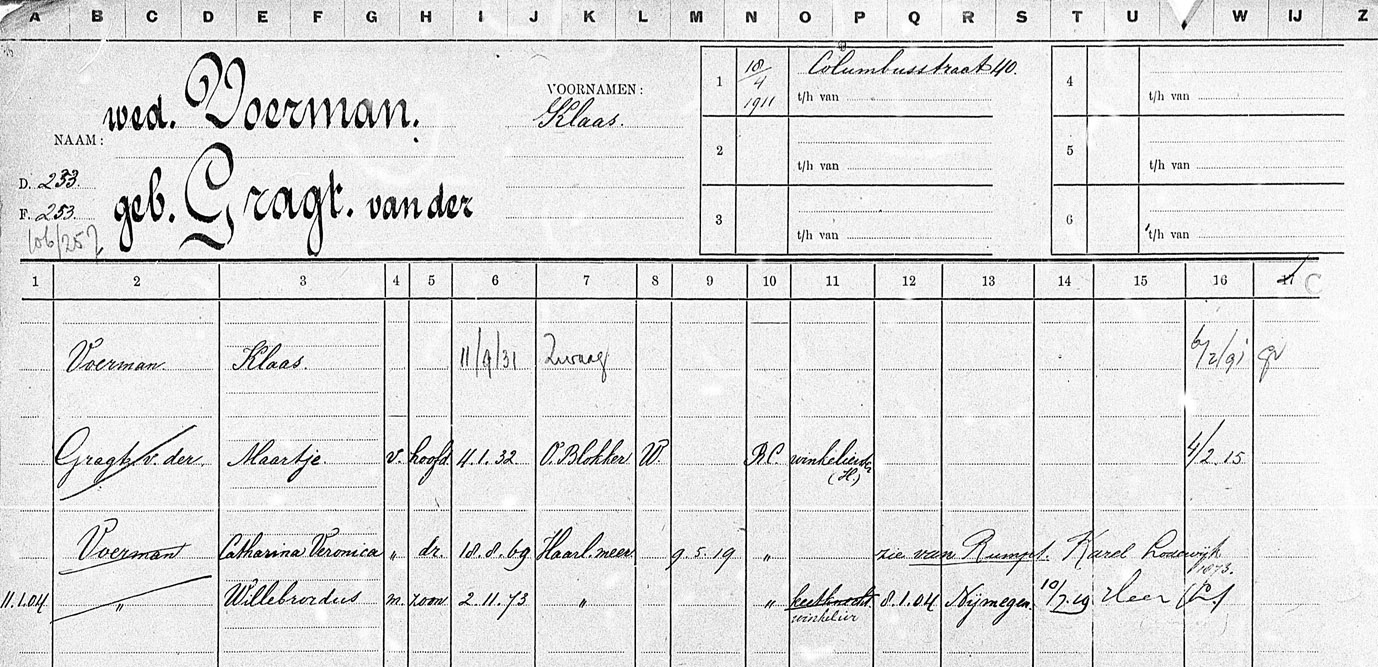 A B C D E F G H I J K L M N O P Q R S T U W IJ Z
NAAM: wed. Voerman.
geb. Gragt. van der
D. 233.
F. 253.
106/257
VOORNAMEN:
Klaas.
1 18/4 1911 Columbusstraat 40.
t/h van
2
t/h van
3
t/h van
4
t/h van
5
t/h van
6
t/h van
1 2 3 4 5 6 7 8 9 10 11 12 13 14 15 16 17 C
Voerman. Klaas. 11/9/31 Zwaag 6/2/91
Gragt v. der. Maartje. v. hoofd. 4.1.32 O.Blokker W. R.C. winkelierster (H.) 4/2.15
Voerman Catharina Veronica " dr. 18.8.69 Haarl.meer 9.5.19 " zie van Rumpt. Karel Lodewijk 1873.
11.1.04 " Willebrordus m. zoon. 2.11.73 " " 8.1.04 Nijmegen. 10/7.19 Heer
winkelier